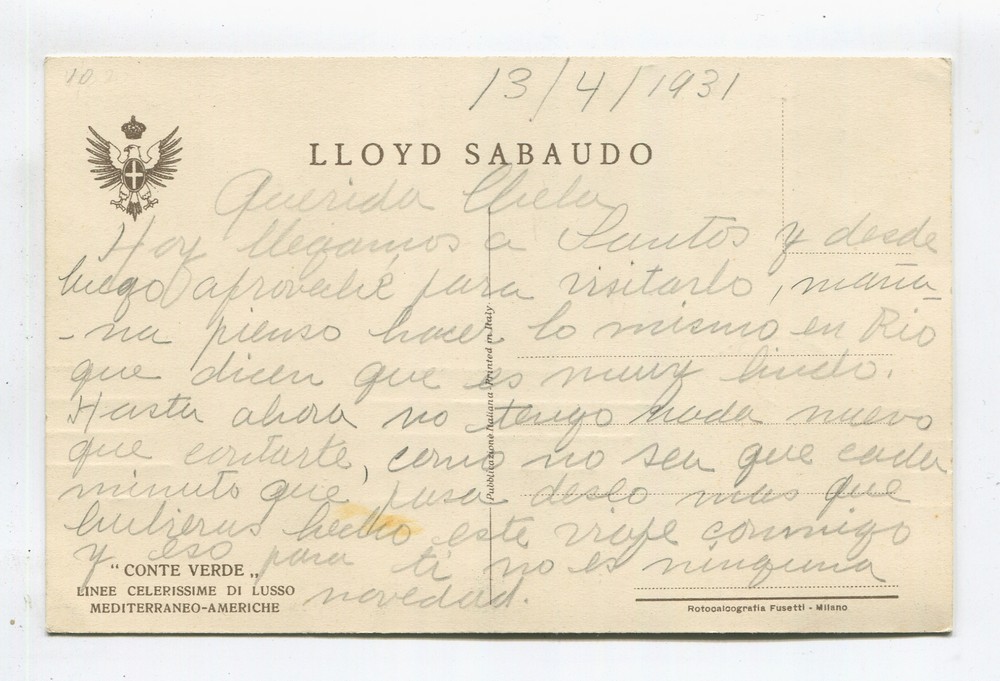 13/4/1931
LLOYD SABAUDO
Querida Chela
Hoy llegamos a Santos y desde
luego aproveché para visitarlo, maña
-na pienso hacer lo mismo en Rio
que dicen que es muy lindo.
Hasta ahora no tengo nada nuevo
que contarte, como no sea que cada
minuto que pasa deseo mas que
hubieras hecho este viaje conmigo
y eso para ti no es ninguna
novedad.
Pubblicazione Italiana - Printed in Italy
" CONTE VERDE „
LINEE CELERISSIME DI LUSSO
MEDITERRANEO-AMERICHE
Rotocalcografia Fusetti - Milano